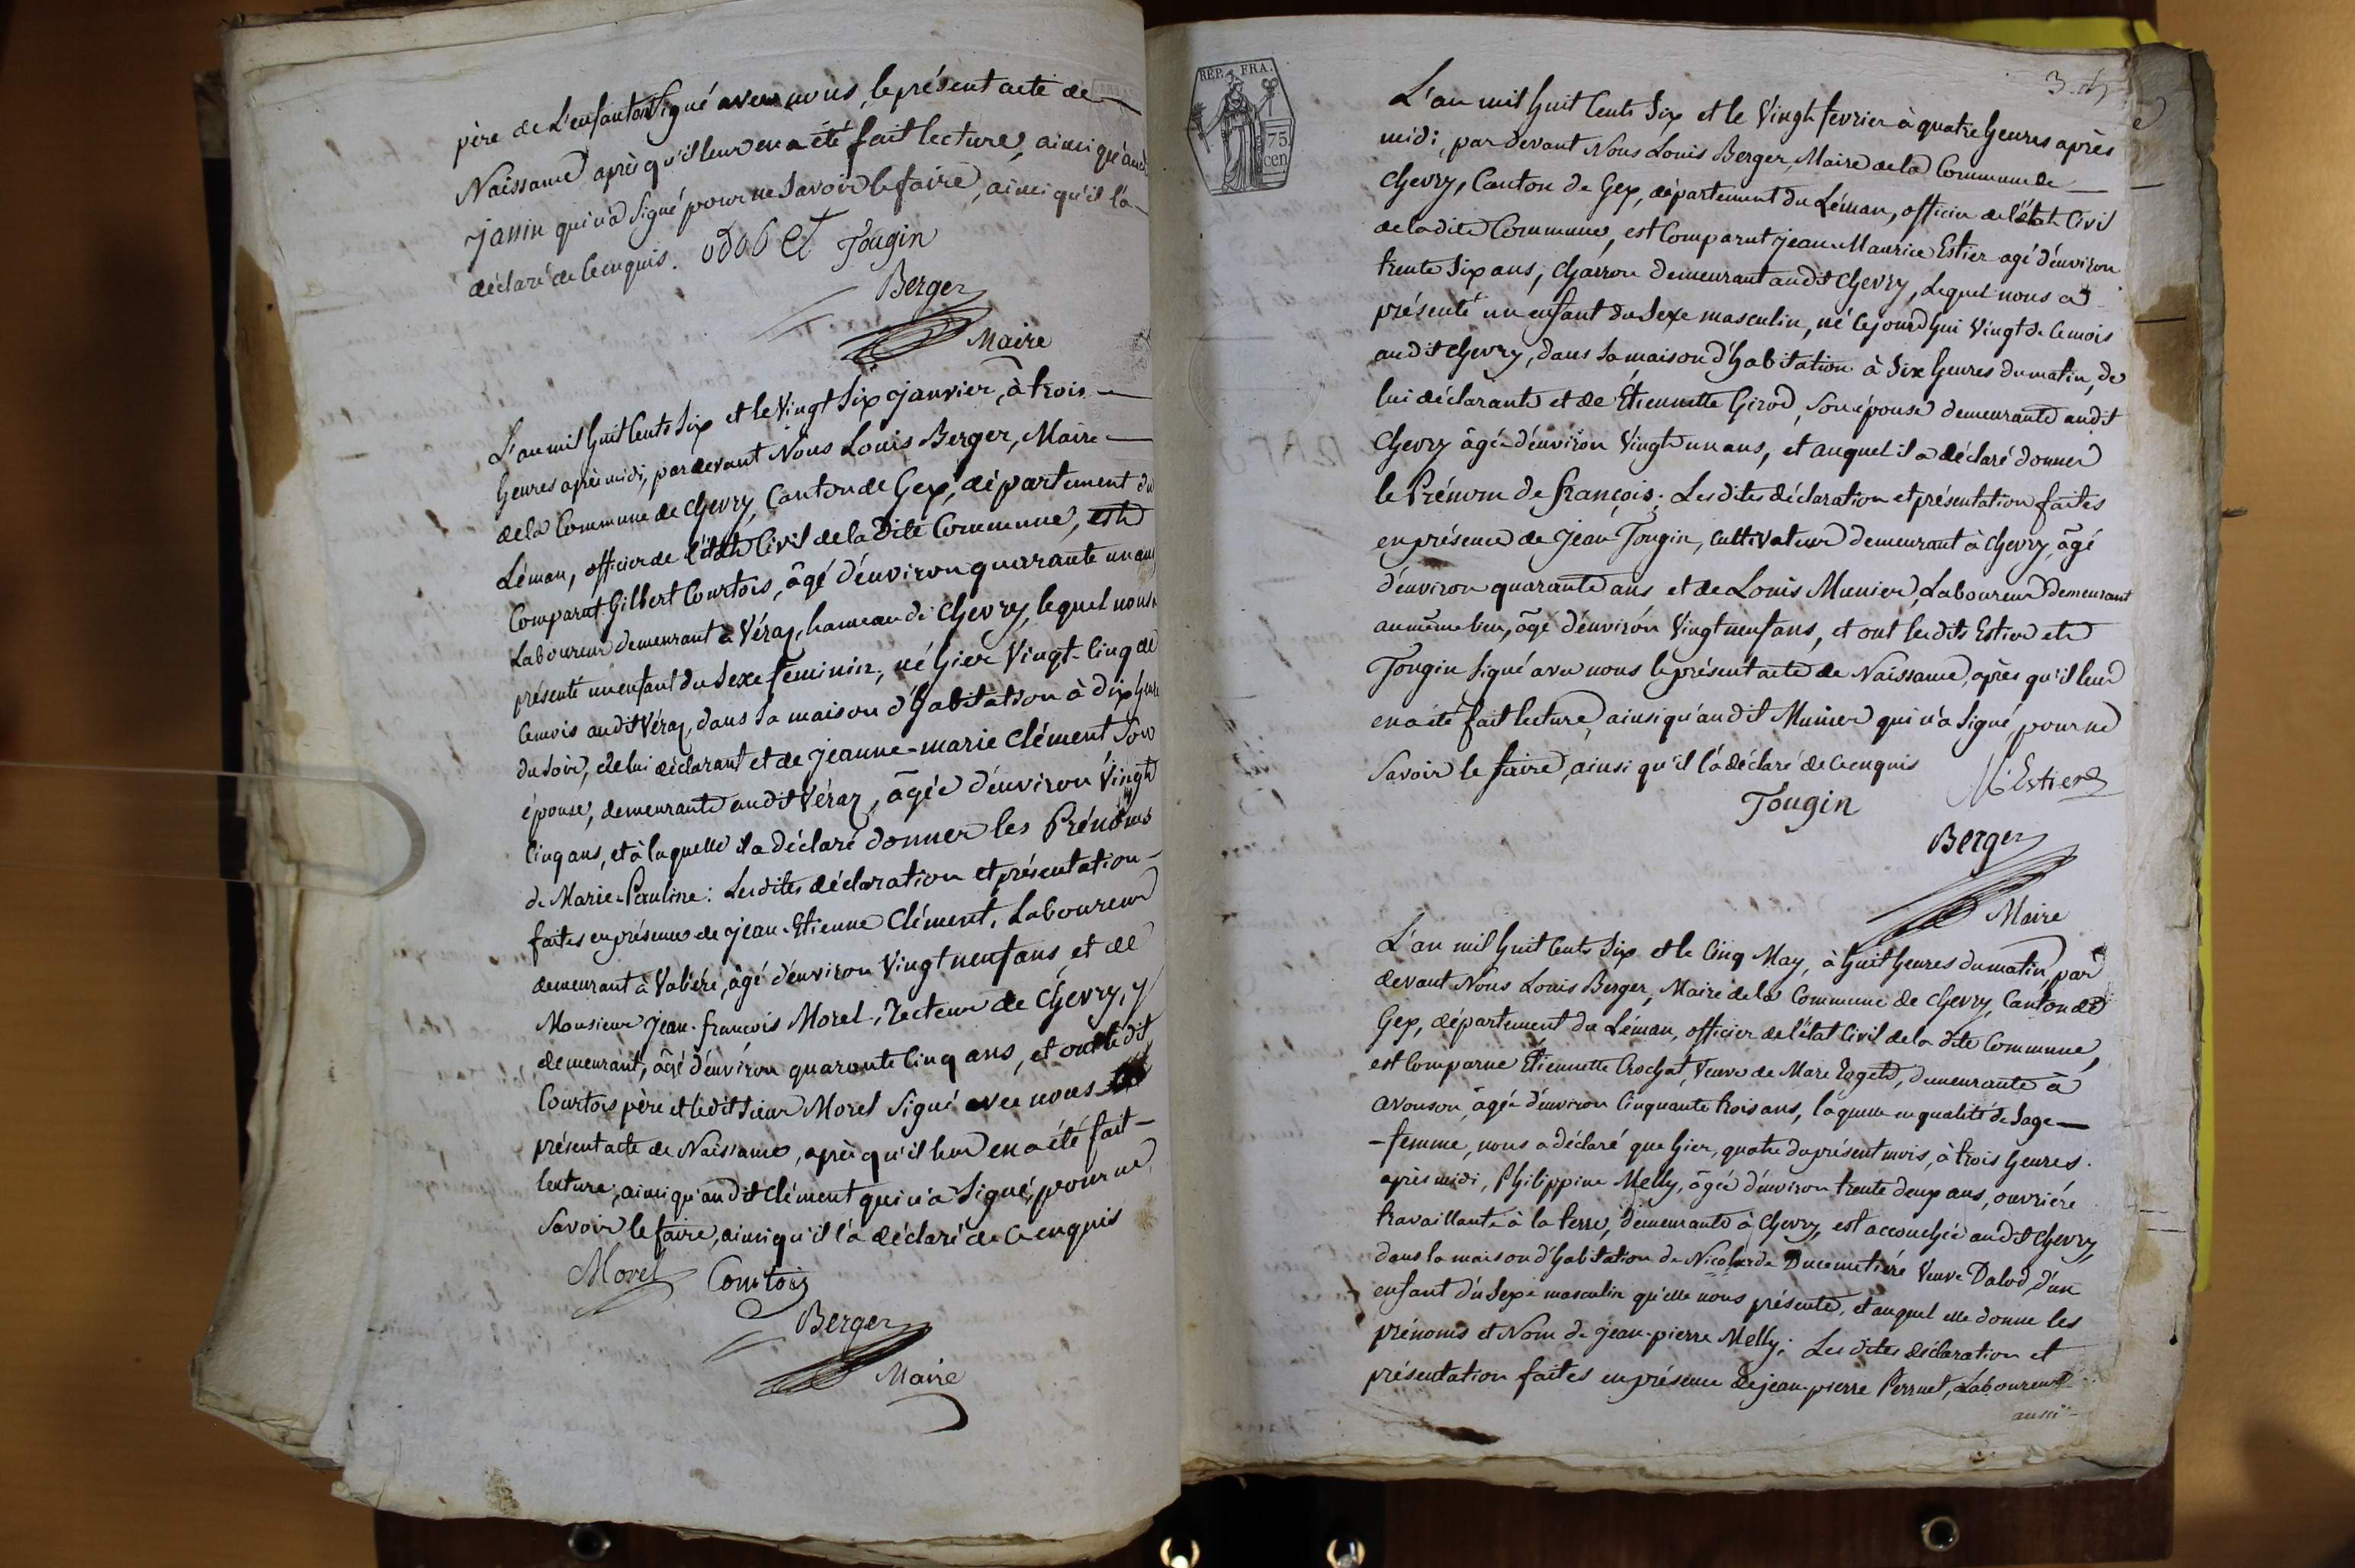 père de L'enfant Signé avec nous, le présent acte de
Naissance après qu'il leur en a été fait lecture, ainsi qu'audit
Janin qui n'a signé pour ne Savoir le faire, ainsi qu'il l'a
déclaré de ce enquis. odobet Tougin
Berger
Maire
L'an mil huit Cents Six et le Vingt Six janvier, à trois
heures après midi, par devant Nous Louis Berger, Maire
de la Commune de Chevry, Canton de Gex, département du
Léman, officier de l'état Civil de la dite Commune, est
Comparut Gilbert Courtois, âgé d'environ quarante un ans
Laboureur demeurant à Véraz, hameau de Chevry, lequel nous a
présenté un enfant du Sexe féminin, né hier Vingt-Cinq de
ce mois audit Véraz, dans sa maison d'habitation à dix heures
du Soir, de lui déclarant et de Jeanne-marie Clément Son
épouse, demeurante audit Véraz, âgée d'environ Vingt
Cinq ans, et à laquelle il a déclaré donner les Prénoms
de Marie-Pauline: Les dites déclaration et présentation
faites en présence de Jean-Etienne Clément, Laboureur
demeurant à Valiéré, âgé d'environ Vingt neuf ans et de
Monsieur Jean-françois Morel, Recteur de Chevry, y
demeurant, âgé d'environ quarante Cinq ans, et ont ledit
Courtois père et ledit Sieur Morel Signé avec nous
présent acte de Naissance, après qu'il leur en a été fait
lecture, ainsi qu'audit Clément qui n'a Signé, pour ne
Savoir le faire, ainsi qu'il l'a déclaré de ce enquis
Morel Courtois
Berger
Maire
REP. FRA.
75
cen
3.
L'an mil huit Cents Six et le Vingt fevrier à quatre heures après
midi, par devant Nous Louis Berger, Maire de la Commune de
Chevry, Canton de Gex, département du Léman, officier de l'état Civil
de la dite Commune, est Comparut Jean Maurice Estier agé d'environ
trente Six ans, Charron demeurant audit Chevry, Lequel nous a
présenté un enfant du Sexe masculin, né Cejourd'hui Vingt de Ce mois
audit Chevry, dans sa maison d'habitation à Six heures du matin, de
lui déclarant et de Étiennette Girod, Son épouse demeurante audit
Chevry âgée d'environ Vingt un ans, et auquel il a déclaré donner
le Prénom de françois. Les dites déclaration et présentation faites
en présence de Jean Tougin, Cultivateur demeurant à Chevry, âgé
d'environ quarante ans et de Louis Munier, Laboureur demeurant
au même lieu, âgé d'environ Vingt neuf ans, et ont les dits Estier et
Tougin Signé avec nous le présent acte de Naissance, après qu'il leur
en a été fait lecture, ainsi qu'audit Munier qui n'a Signé, pour ne
Savoir le faire, ainsi qu'il l'a déclaré de ce enquis
Tougin M Estier
Berger
Maire
L'an mil huit Cents Six et le Cinq May, à huit heures du matin, par
devant Nous Louis Berger, Maire de la Commune de Chevry, Canton de
Gex, département du Léman, officier de l'état Civil de la dite Commune,
est Comparue Étiennette Crochat, Veuve de Marc Roget, demeurante à
Avouson, âgée d'environ Cinquante trois ans, laquelle en qualité de Sage
-femme, nous a déclaré que hier, quatre du présent mois, à trois heures
après midi, Philippine Melly, âgée d'environ trente deux ans, ouvriére
travaillante à la terre, demeurante à Chevry, est accouchée audit Chevry,
dans la maison d'habitation de Nicolarde Ducimetiére Veuve Dalod, d'un
enfant du Sexe masculin qu'elle nous présente, et auquel elle donne les
prénoms et Nom de Jean-pierre Melly; Les dites déclaration et
présentation faites en présence de Jean-pierre Perruet, Laboureur
aussi